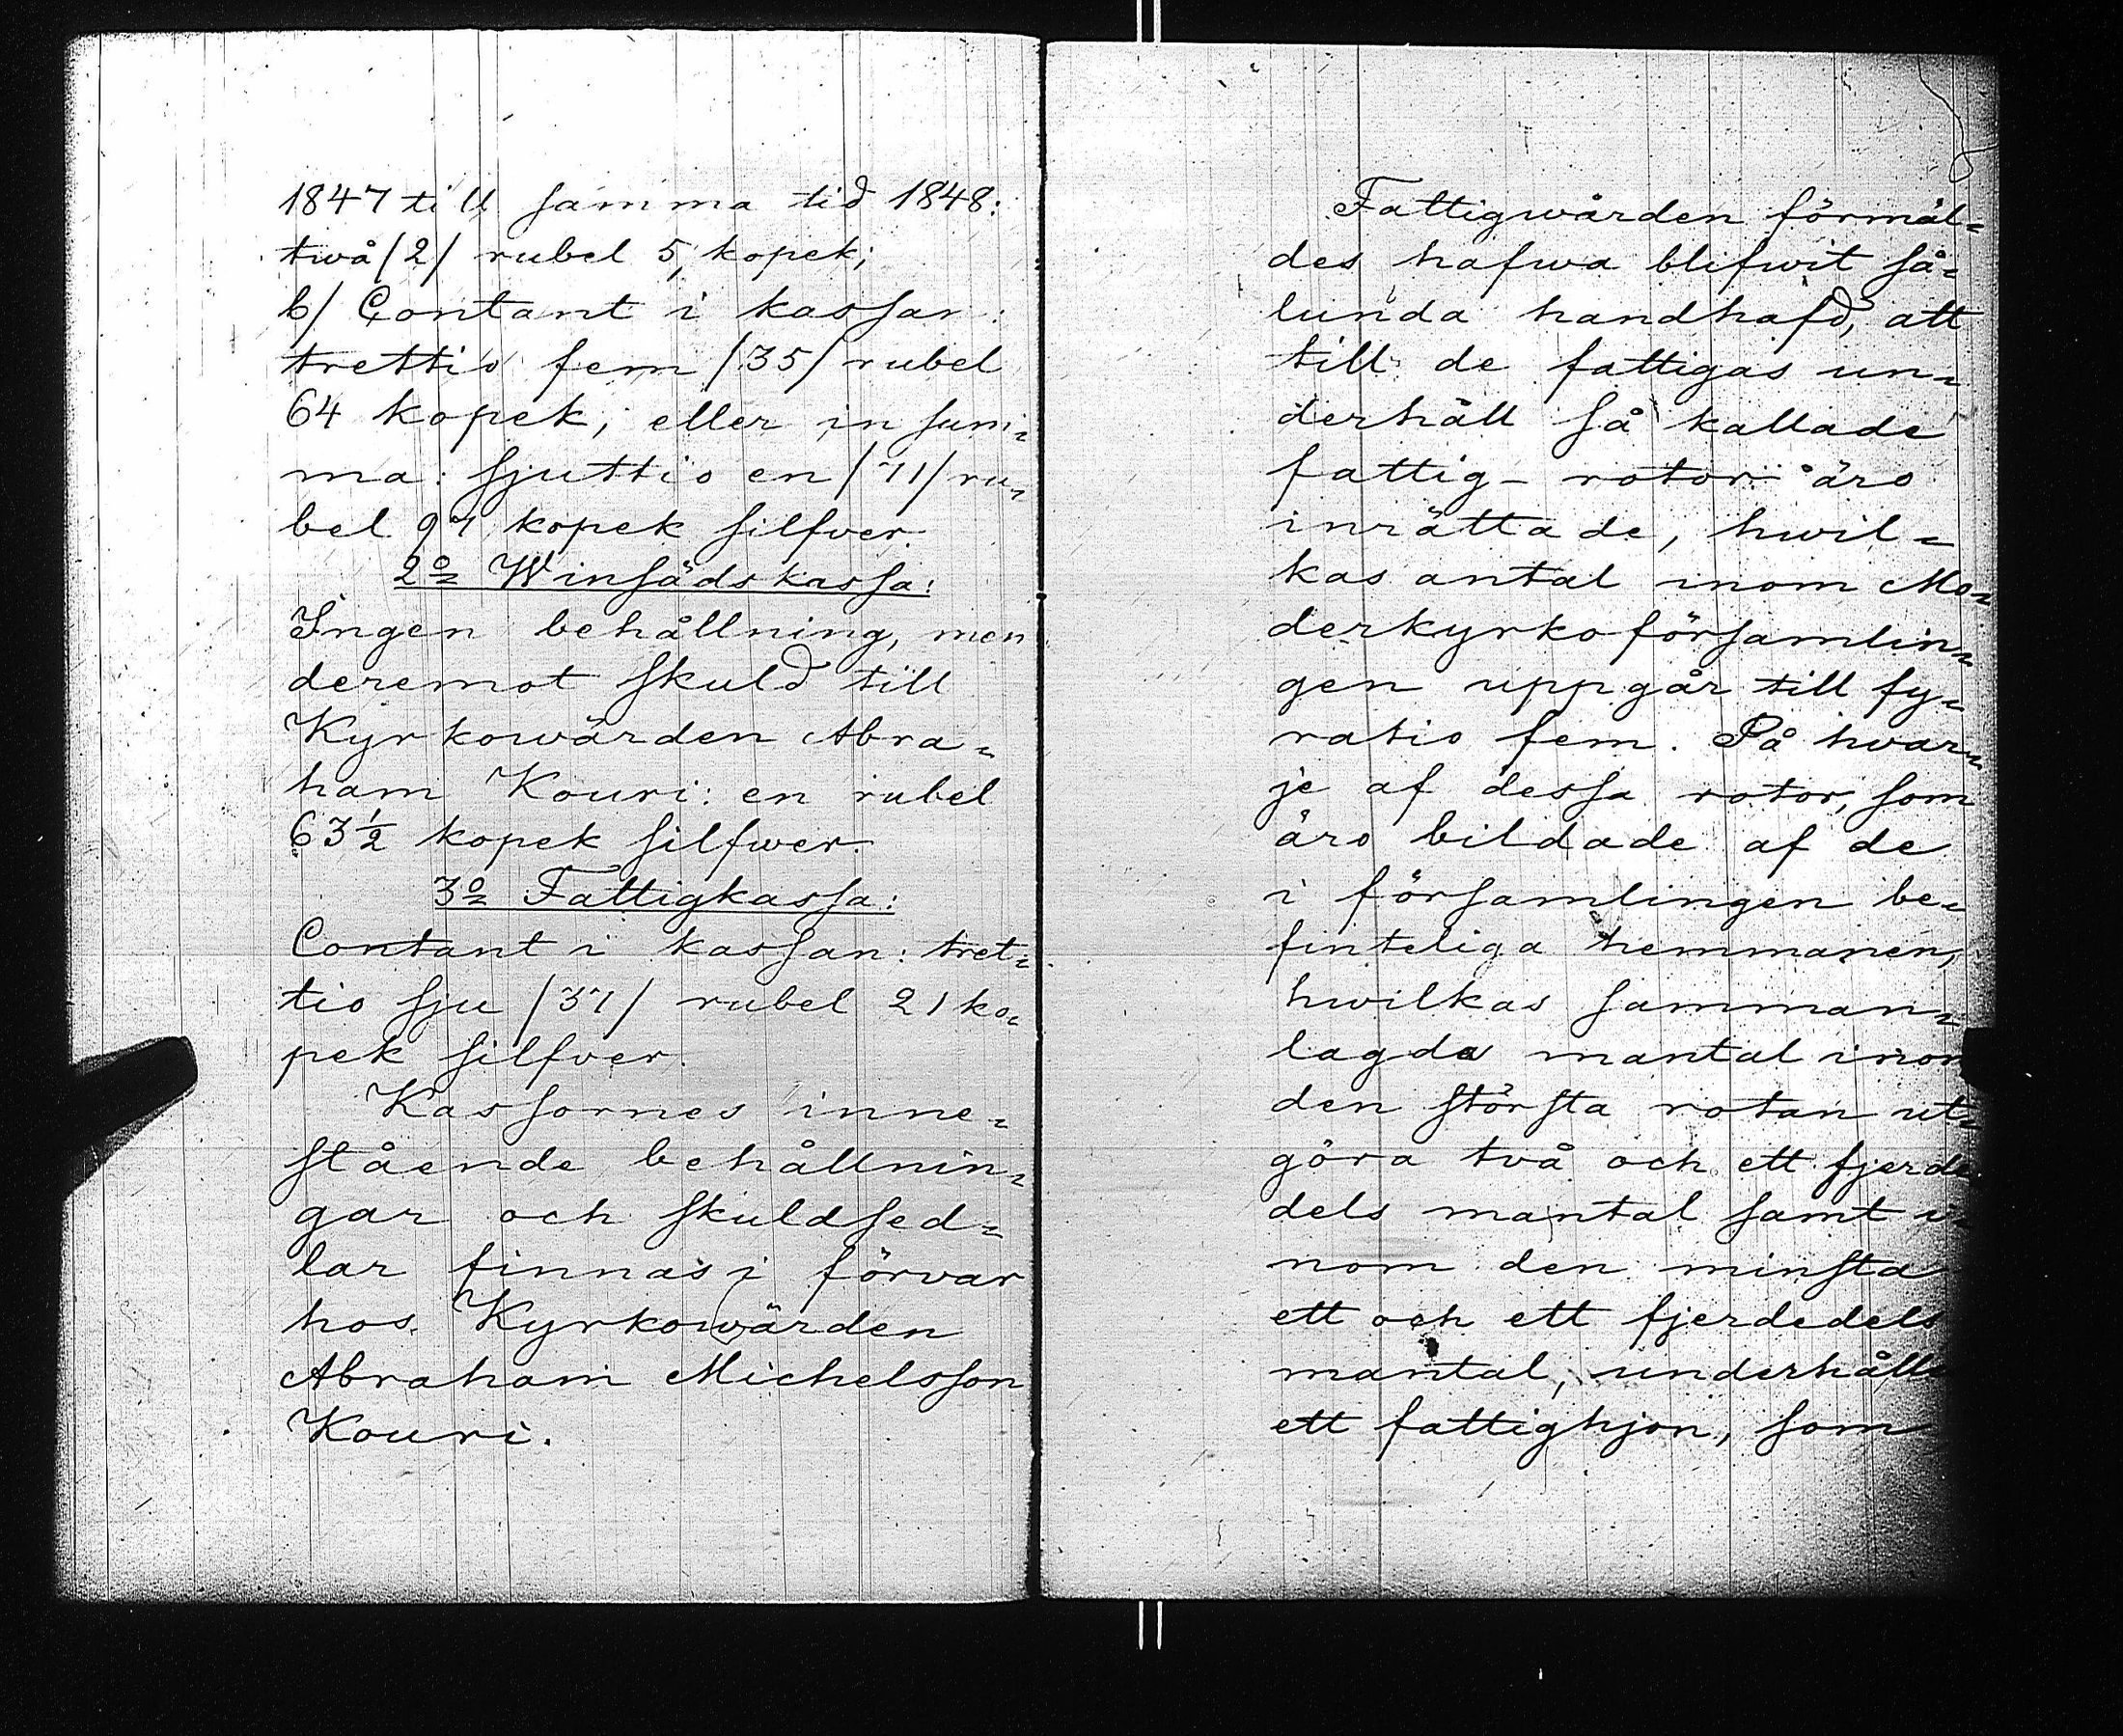 1847 till samma tid 1848:
twå /2/ rubel 5, kopek;
b/ Contant i kassan:
trettio fem /35/ rubel
64 kopek; eller in sum=
ma: sjuttio en /71/ ru=
bel 97 kopek silfver.
2o Winsädskassa:
Ingen behållning, men
deremot skuld till
Kyrkowärden Abra=
ham Kouri: en rubel
63½ kopek silfwer.
3o Fattigkassa:
Contant i kassan: tret=
tio sju /37/ rubel 21 ko=
pek silfver.
Kassornes inne=
stående behållnin=
gar och skuldsed=
lar finnas i förvar
hos Kyrkowärden
Abraham Michelsson
Kouri.
Fattigwården förmäl=
des hafwa blifwit så=
lunda handhafd, att
till de fattigas un=
derhåll så kallade
fattig-rotor äro
inrättade, hwil=
kas antal inom Mo=
derkyrkoförsamlin=
gen uppgår till fy=
ratio fem. På hwar=
je af dessa rotor, som
äro bildade af de
i församlingen be=
finteliga hemmanen,
hwilkas samman=
lagda mantal inom
den största rotan ut=
göra två och ett fjerde
dels mantal samt i
nom den minsta
ett och ett fjerdedels
mantal, underhålles
ett fattighjon, som